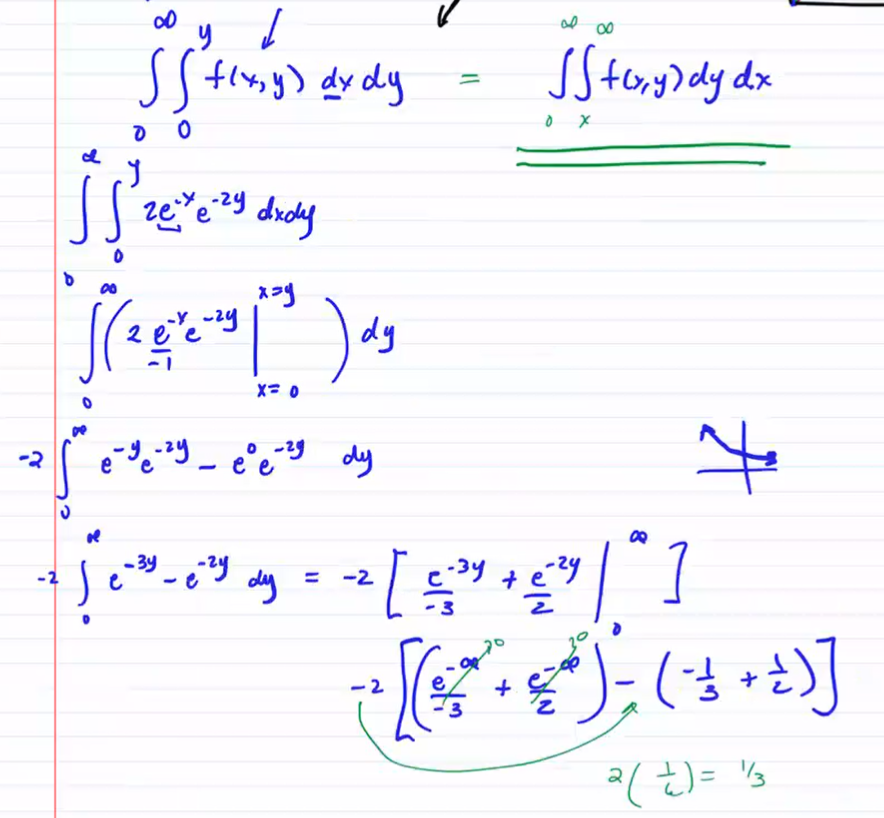 ∫₀^∞ ∫₀^y f(x,y) dx dy = ∫₀^∞ ∫ₓ^∞ f(x,y) dy dx
∫₀^∞ ∫₀^y 2e^-x e^-2y dxdy
∫₀^∞ ( 2 e^-x/-1 e^-2y |_{x=0}^{x=y} ) dy
-2 ∫₀^∞ e^-y e^-2y - e^0 e^-2y dy
-2 ∫₀^∞ e^-3y - e^-2y dy = -2 [ e^-3y/-3 + e^-2y/2 |₀^∞ ]
-2 [ ( e^-∞/-3 →0 + e^-∞/2 →0 ) - ( -1/3 + 1/2 ) ]
2 ( 1/6 ) = 1/3